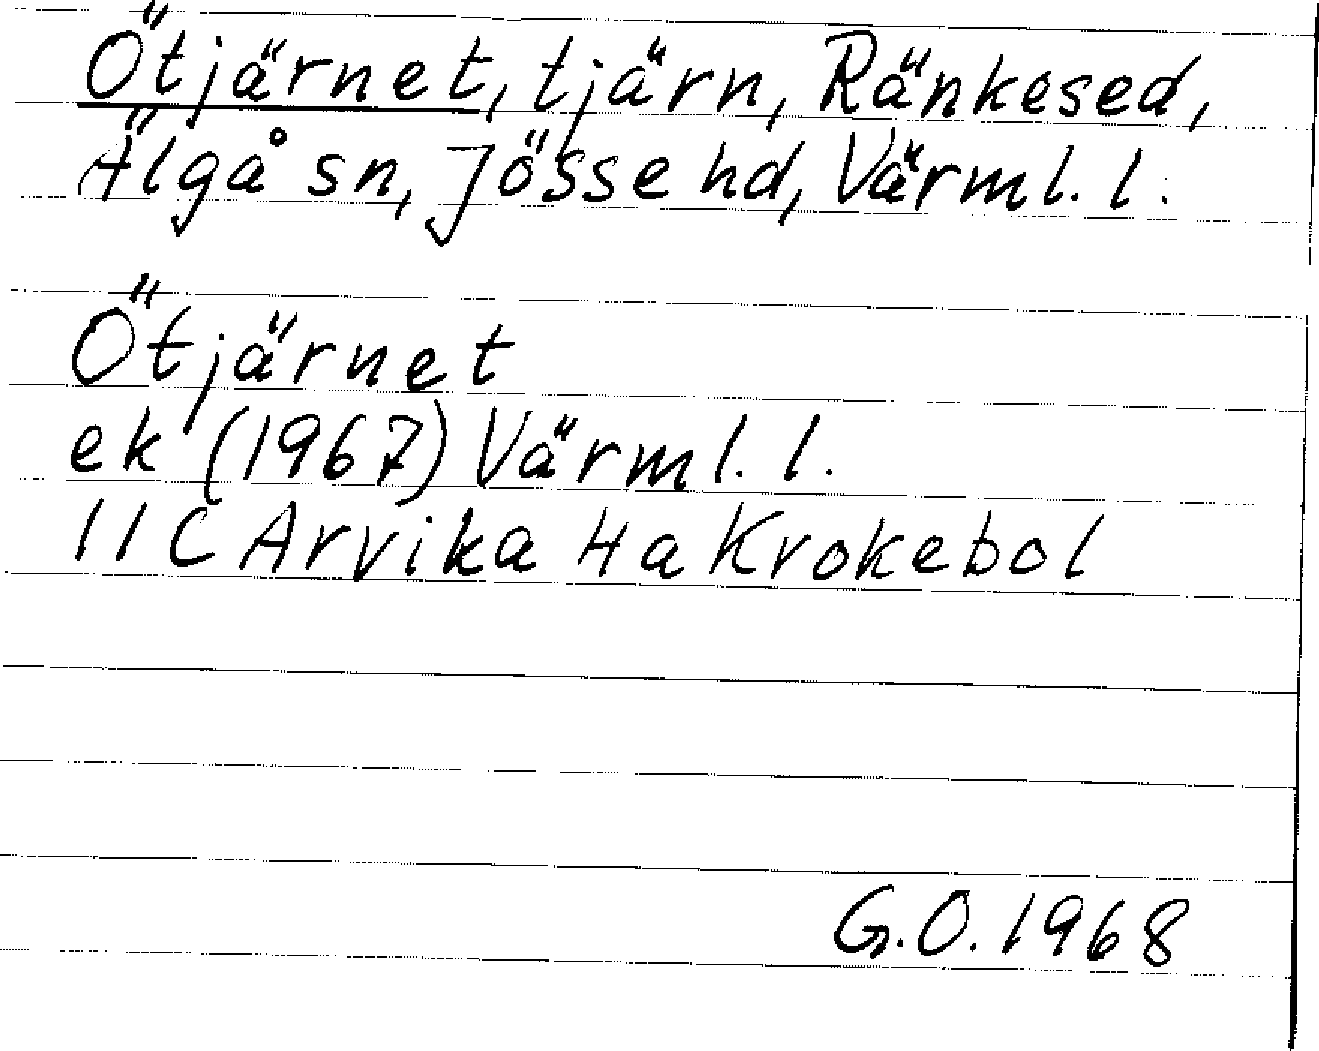 Ötjärnet, tjärn, Ränkesed,
Älgå sn, Jösse hd, Värml. l.
Ötjärnet
ek (1967) Värml. l.
11C Arvika 4a Krokebol
G.O. 1968